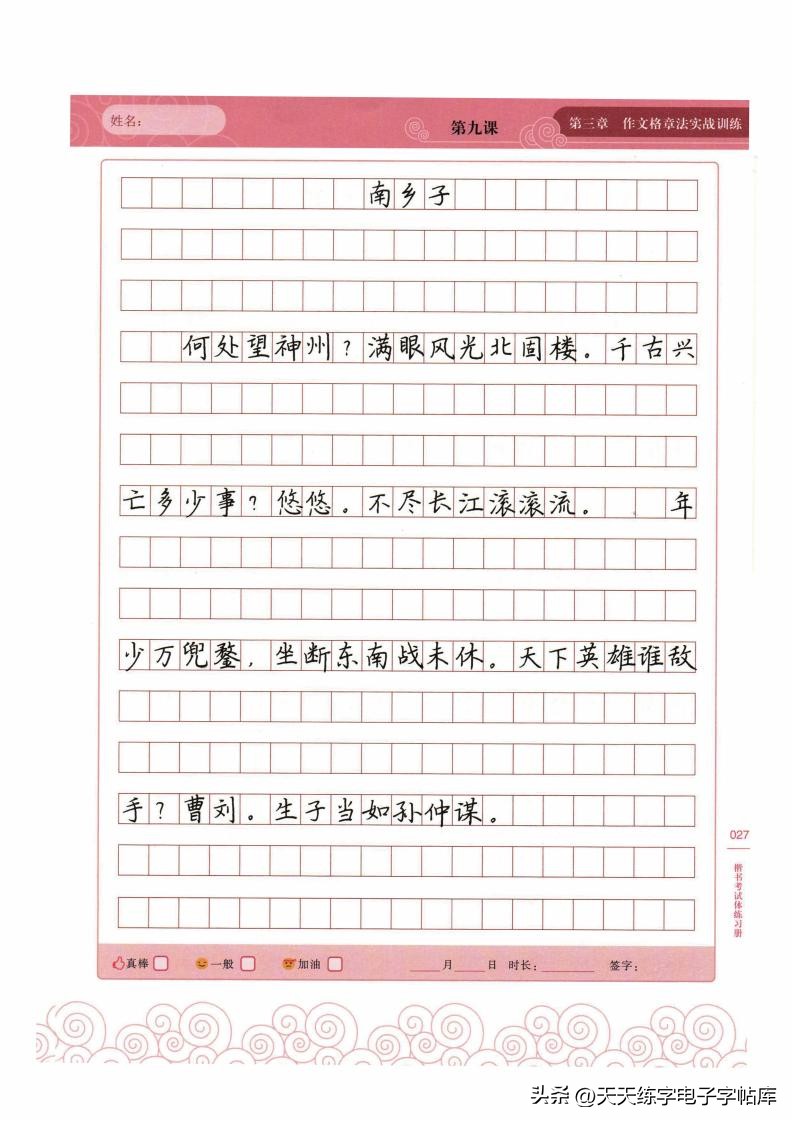 姓名：
第九课
第三章 作文格章法实战训练
南乡子
何处望神州？满眼风光北固楼。千古兴
亡多少事？悠悠。不尽长江滚滚流。 年
少万兜鍪，坐断东南战未休。天下英雄谁敌
手？曹刘。生子当如孙仲谋。
027
楷书考试体练习册
真棒 一般 加油 ____月____日 时长：______ 签字：
头条 @天天练字电子字帖库